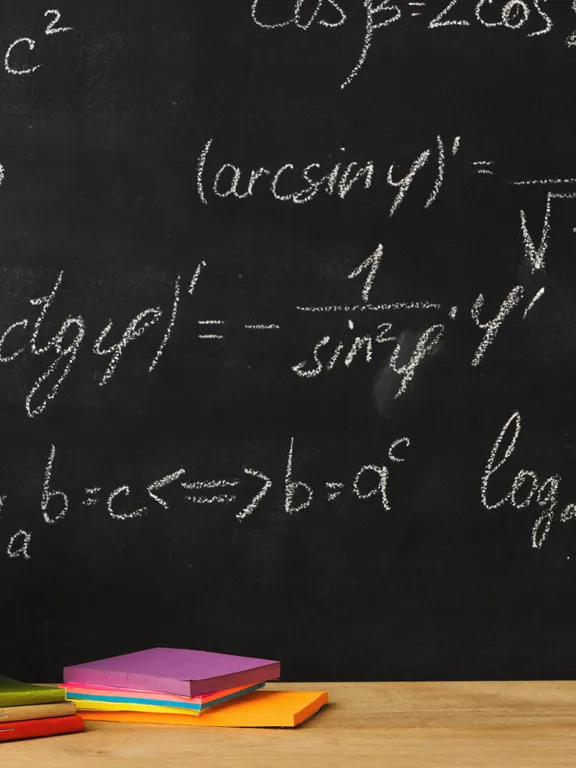 c² cos β = 2 cos
(arcsin φ)' = √
ctg φ)' = - 1/sin²φ · φ'
a b = c <=> b = aᶜ log